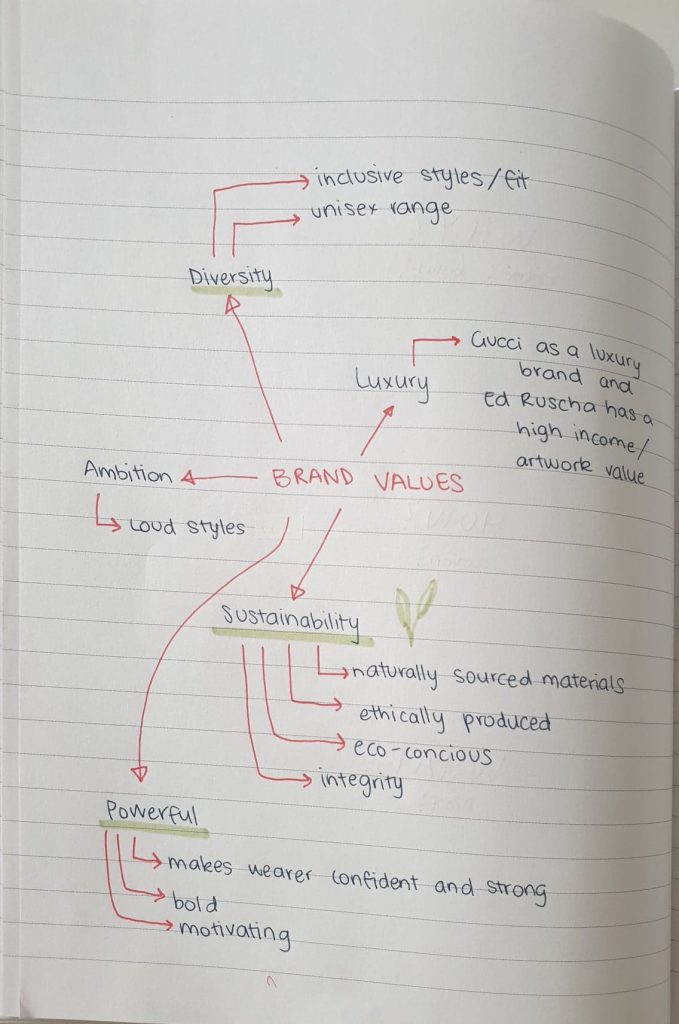 inclusive styles/fit
unisex range
Diversity
Luxury
Gucci as a luxury
brand and
Ed Ruscha has a
high income/
artwork value
Ambition
BRAND VALUES
Loud styles
Sustainability
naturally sourced materials
ethically produced
eco-concious
integrity
Powerful
makes wearer confident and strong
bold
motivating